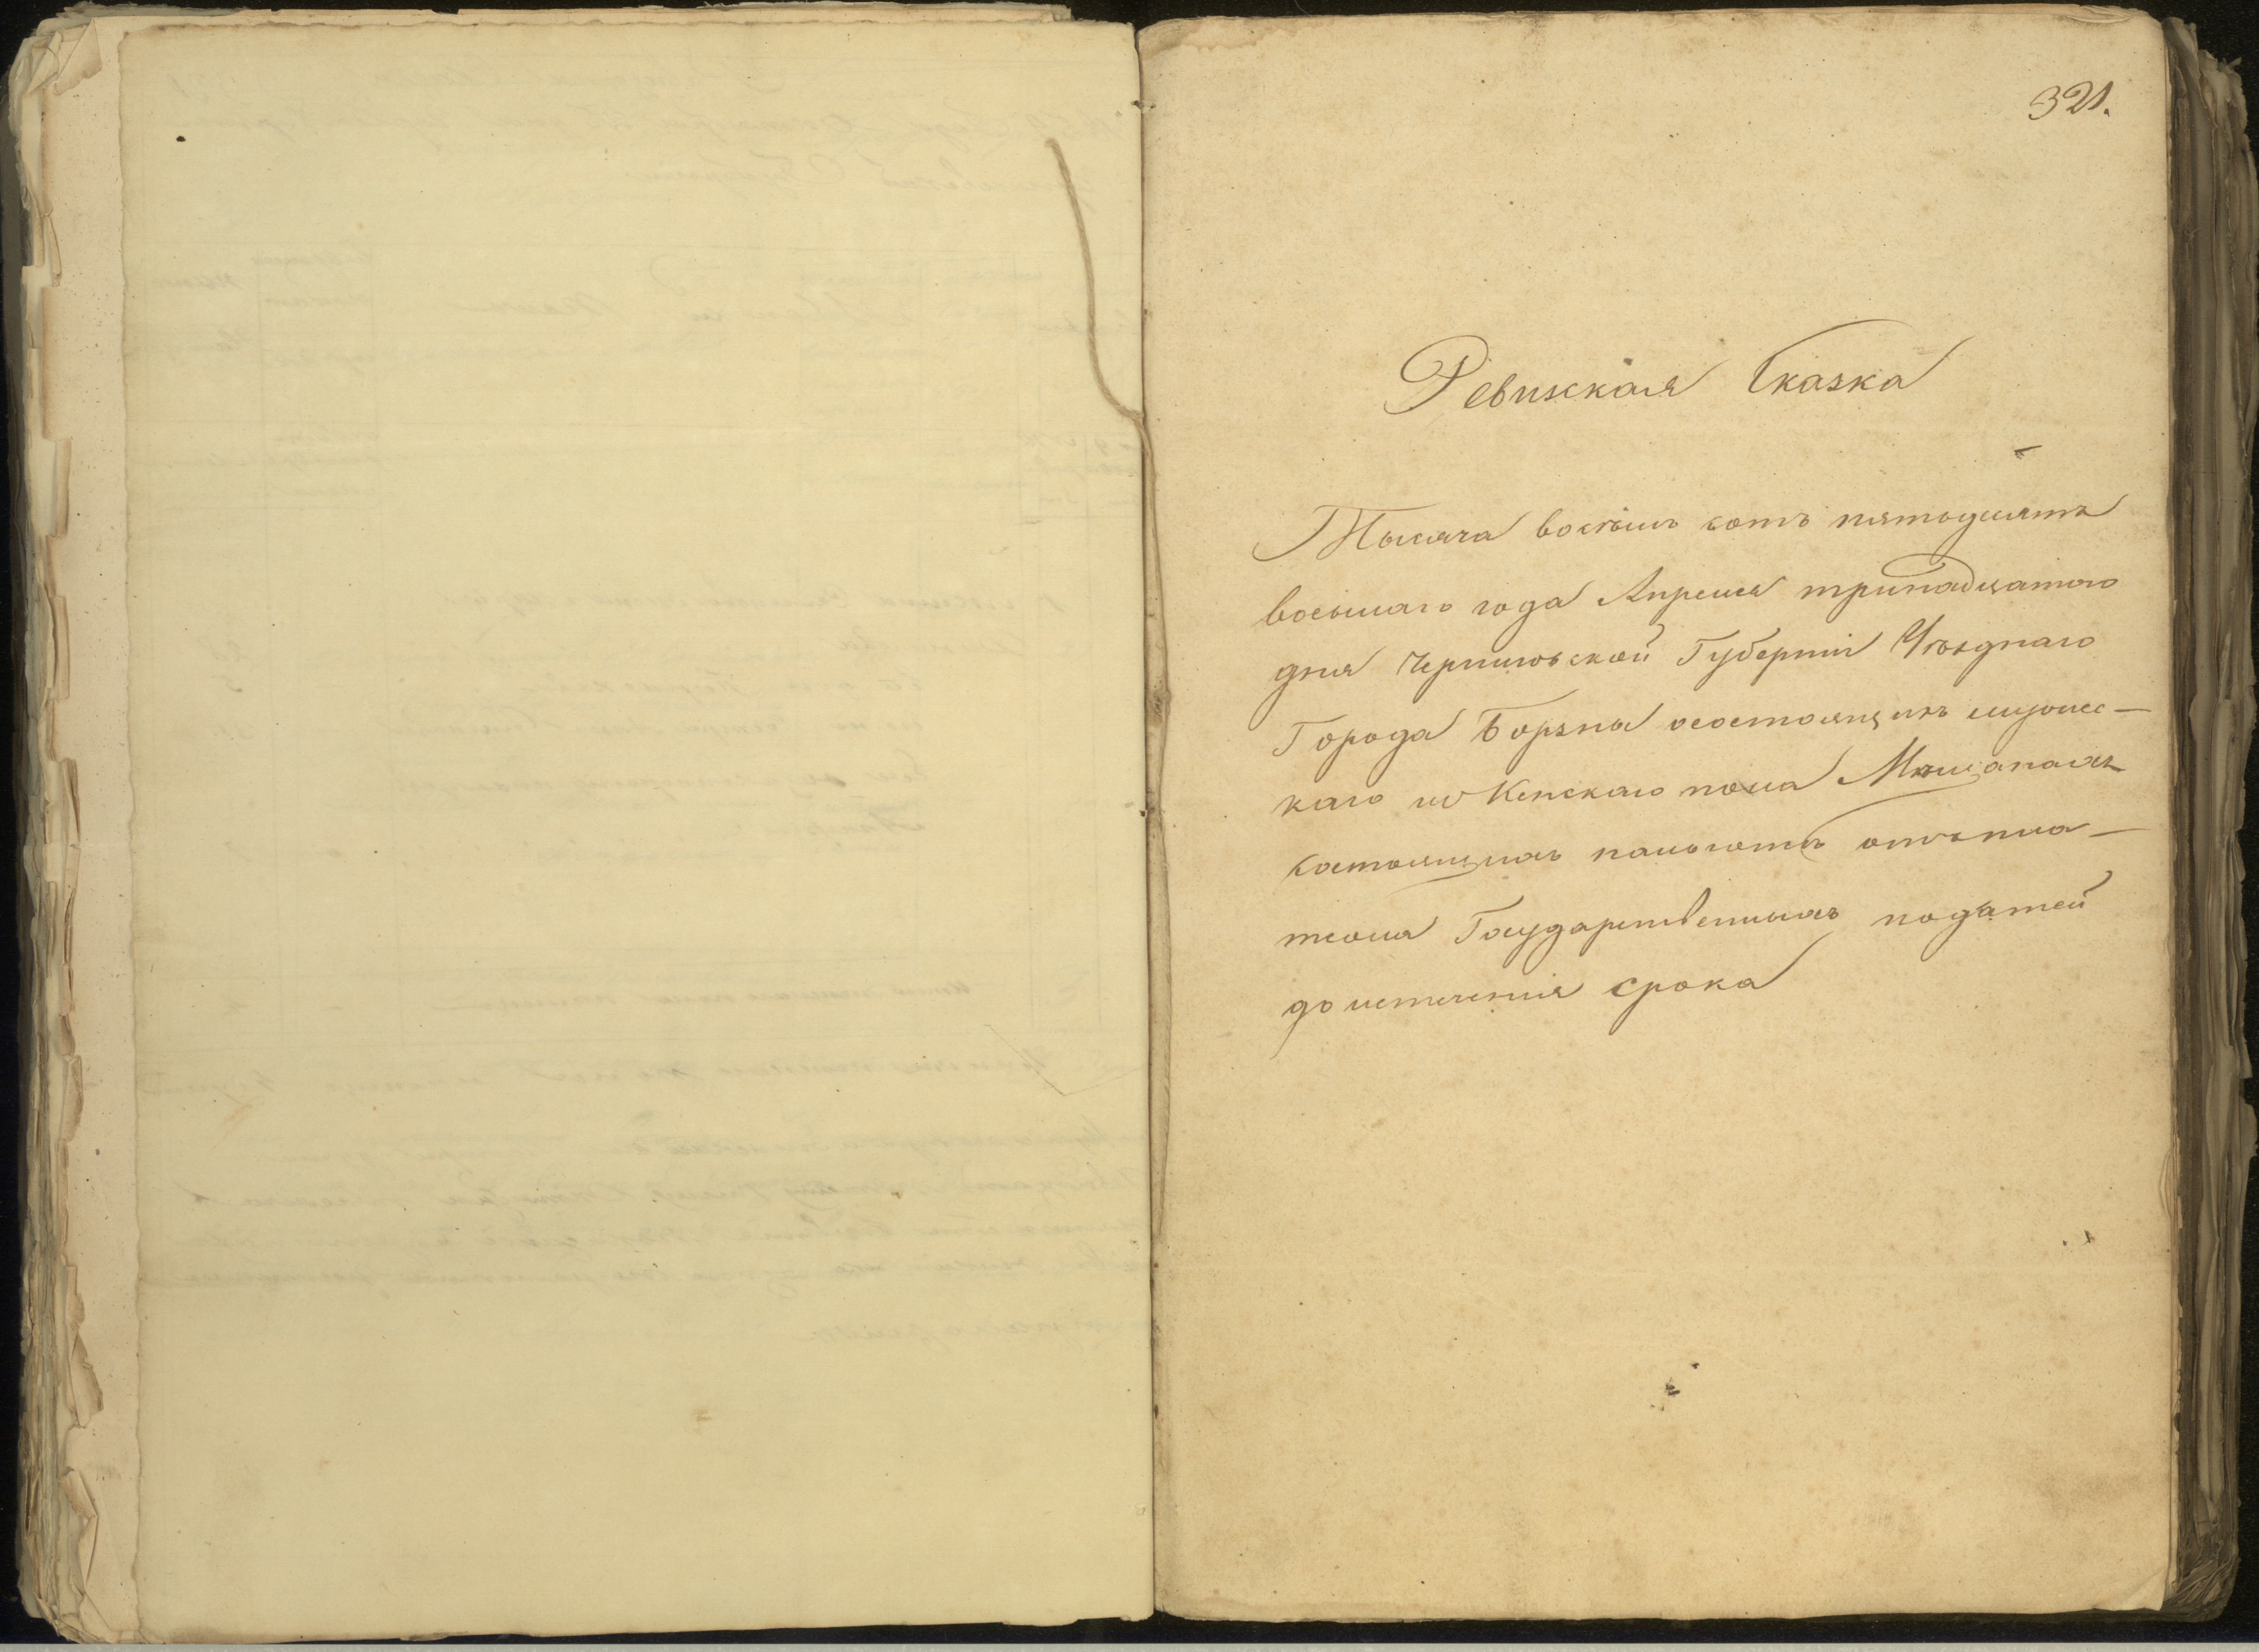 321.
Ревизская Сказка
Тысяча восемь сотъ пятьдесятъ
восьмаго года Апреля тринадцатого
дня Черниговской Губерніи Уѣзднаго
Города Борзны осостоящихъ мужес-
каго и Женскаго пола Мѣщанахъ
состоящихъ нальготѣ отъ пла-
тежа Государственныхъ податей
до истеченія срока